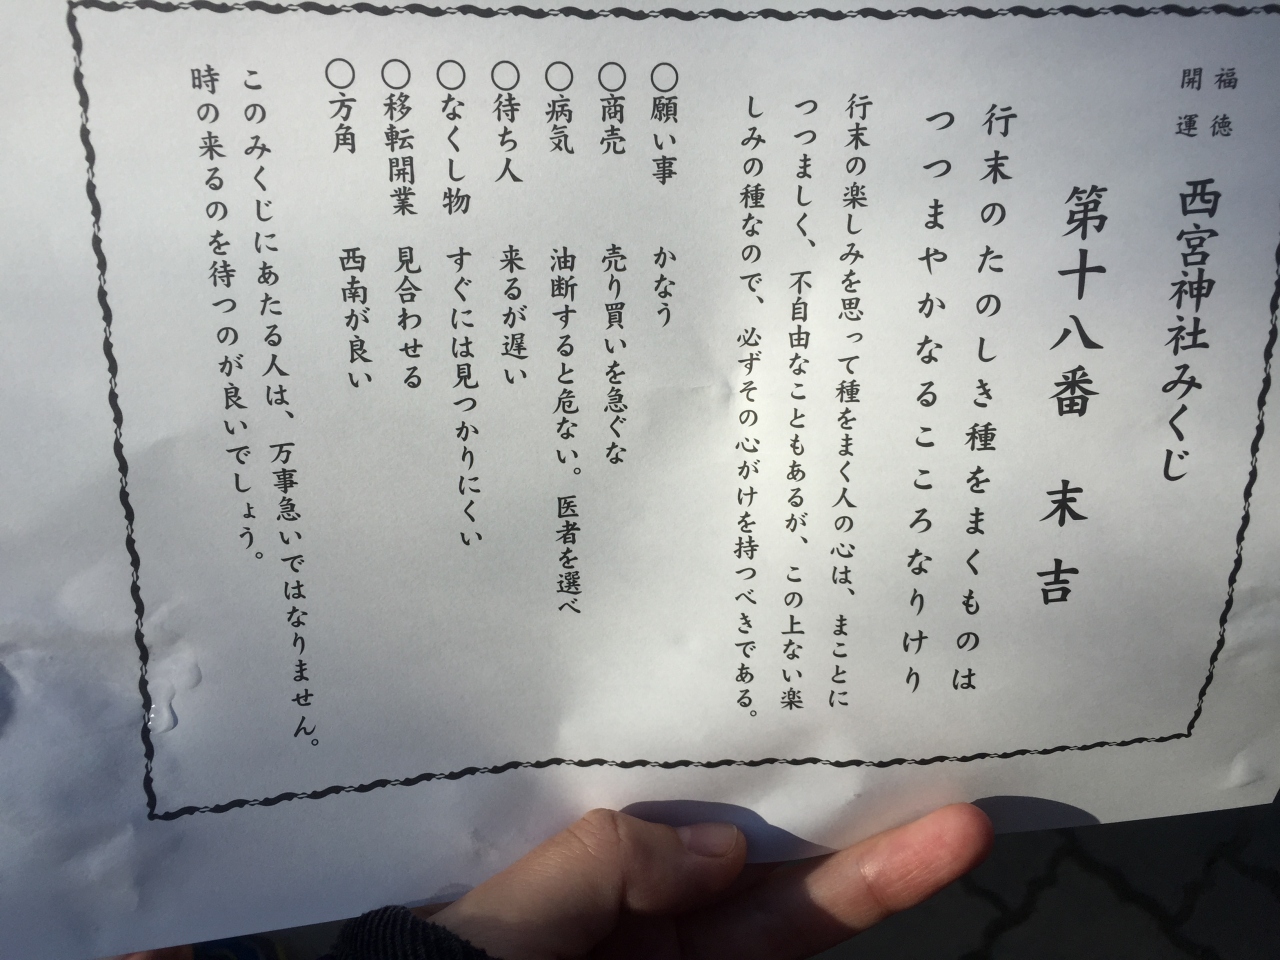 福徳
開運
西宮神社みくじ
第十八番　末吉
行末のたのしき種をまくものは
つつまやかなるこころなりけり
行末の楽しみを思って種をまく人の心は、まことに
つつましく、不自由なこともあるが、この上ない楽
しみの種なので、必ずその心がけを持つべきである。
〇願い事　かなう
〇商売　売り買いを急ぐな
〇病気　油断すると危ない。医者を選べ
〇待ち人　来るが遅い
〇なくし物　すぐには見つかりにくい
〇移転開業　見合わせる
〇方角　西南が良い
このみくじにあたる人は、万事急いではなりません。
時の来るのを待つのが良いでしょう。